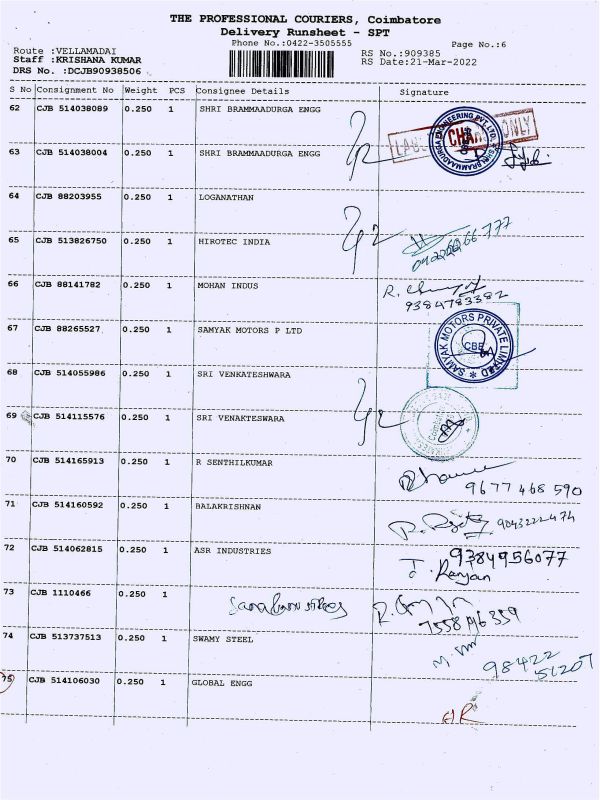 THE PROFESSIONAL COURIERS, Coimbatore
Delivery Runsheet - SPT
Phone No.:0422-3505555
Page No.:6
Route :VELLAMADAI
Staff :KRISHANA KUMAR
RS No.:909385
DRS No. :DCJB90938506
RS Date:21-Mar-2022
S No Consignment No Weight PCS Consignee Details Signature
62 CJB 514038089 0.250 1 SHRI BRAMMAADURGA ENGG
63 CJB 514038004 0.250 1 SHRI BRAMMAADURGA ENGG
64 CJB 88203955 0.250 1 LOGANATHAN
65 CJB 513826750 0.250 1 HIROTEC INDIA
66 CJB 88141782 0.250 1 MOHAN INDUS
9384783382
67 CJB 88265527 0.250 1 SAMYAK MOTORS P LTD
SAMYAK MOTORS PRIVATE LIMITED
CBE
68 CJB 514055986 0.250 1 SRI VENKATESHWARA
69 CJB 514115576 0.250 1 SRI VENAKTESWARA
70 CJB 514165913 0.250 1 R SENTHILKUMAR
9677 468 590
71 CJB 514160592 0.250 1 BALAKRISHNAN
9043222474
72 CJB 514062815 0.250 1 ASR INDUSTRIES
9384956077
73 CJB 1110466 0.250 1
74 CJB 513737513 0.250 1 SWAMY STEEL
98422
51207
75 CJB 514106030 0.250 1 GLOBAL ENGG